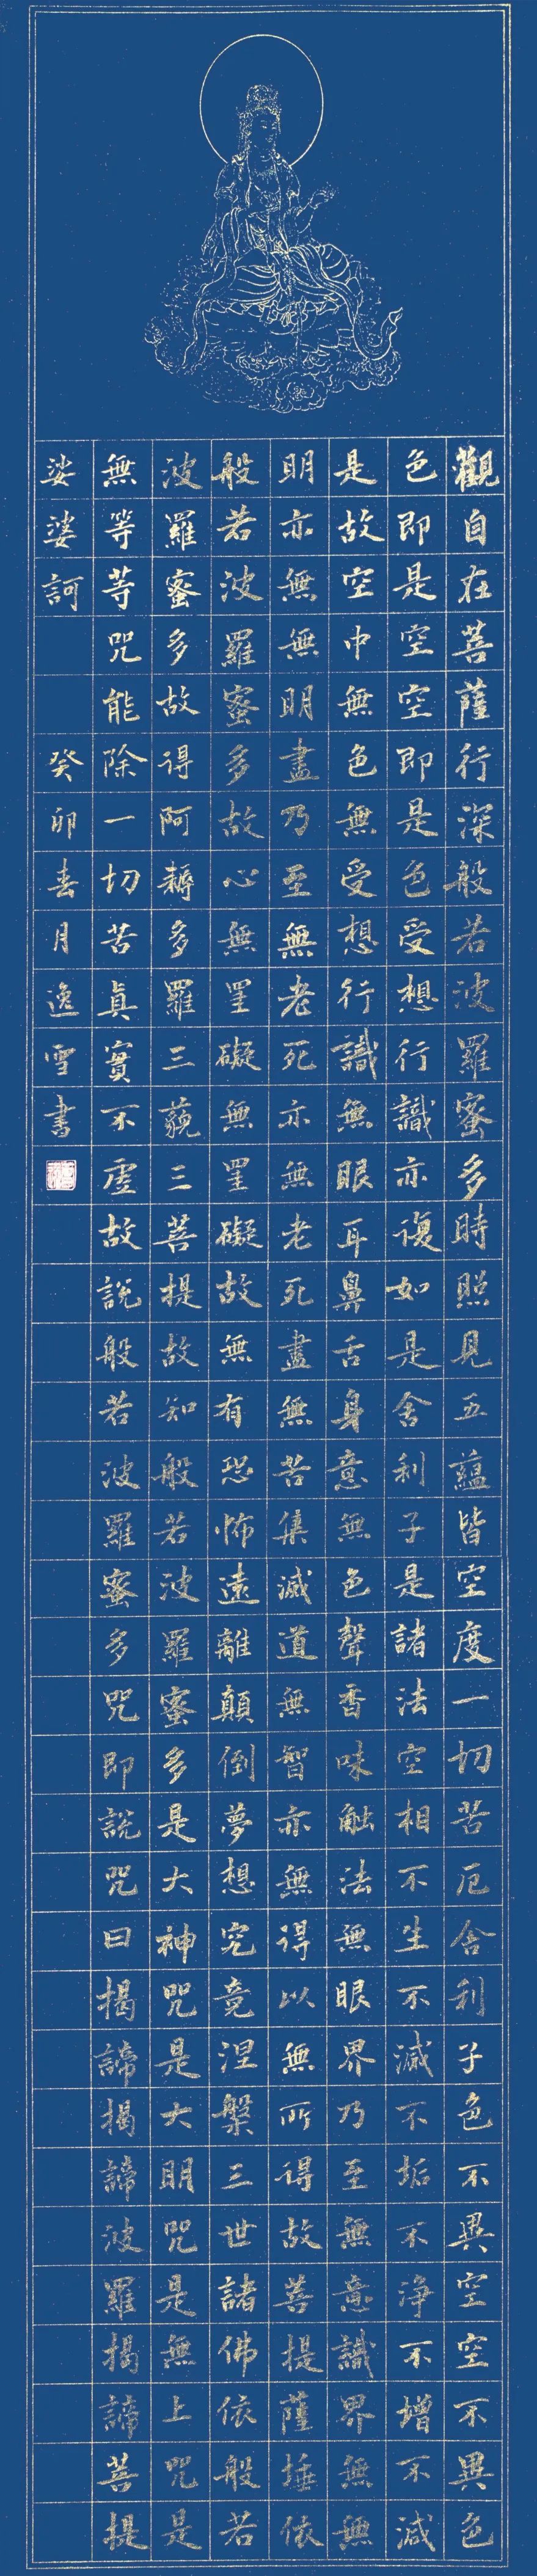 觀自在菩薩行深般若波羅蜜多時照見五蘊皆空度一切苦厄舍利子色不異空空不異色
色即是空空即是色受想行識亦復如是舍利子是諸法空相不生不滅不垢不淨不增不減
是故空中無色無受想行識無眼耳鼻舌身意無色聲香味觸法無眼界乃至無意識界無無
明亦無無明盡乃至無老死亦無老死盡無苦集滅道無智亦無得以無所得故菩提薩埵依
般若波羅蜜多故心無罣礙無罣礙故無有恐怖遠離顛倒夢想究竟涅槃三世諸佛依般若
波羅蜜多故得阿耨多羅三藐三菩提故知般若波羅蜜多是大神咒是大明咒是無上咒是
無等等咒能除一切苦真實不虛故說般若波羅蜜多咒即說咒曰揭諦揭諦波羅揭諦菩提
娑婆訶 癸卯春月逸雪書